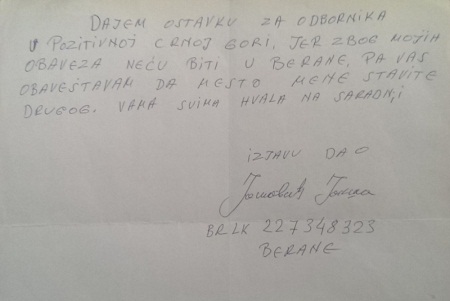 DAJEM OSTAVKU ZA ODBORNIKA
U POZITIVNOJ CRNOJ GORI, JER ZBOG MOJIH
OBAVEZA NEĆU BITI U BERANE, PA VAS
OBAVEŠTAVAM DA MESTO MENE STAVITE
DRUGOG. VAMA SVIMA HVALA NA SARADNJI
IZJAVU DAO
BRLK 227348323
BERANE